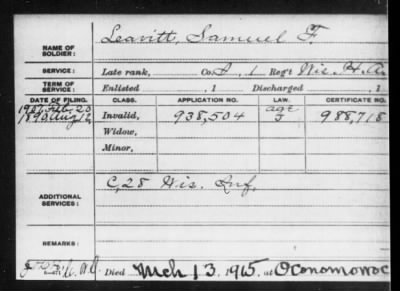 Leavitt, Samuel F.
NAME OF SOLDIER:
SERVICE: Late rank, Co. I, 1 Reg't Wis. H. A.
TERM OF SERVICE: Enlisted , 1 Discharged , 1
DATE OF FILING. CLASS. APPLICATION NO. LAW. CERTIFICATE NO.
1907. Feb. 23 age
1890. Aug 12, Invalid, 938,504 J 988,718
Widow,
Minor,
C, 28 Wis. Inf.
ADDITIONAL SERVICES:
REMARKS:
Died Mch 13, 1915, at Oconomowoc